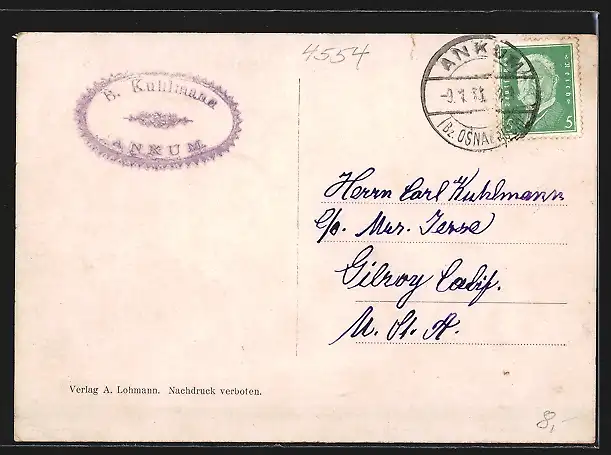 4554
B. Kuhlmann
ANKUM
ANKUM
(Bz. OSNA
5
Herrn Carl Kuhlmann
C/o. Mrs. Jesse
Gilroy Calif.
U. St. A.
Verlag A. Lohmann. Nachdruck verboten.
8,-